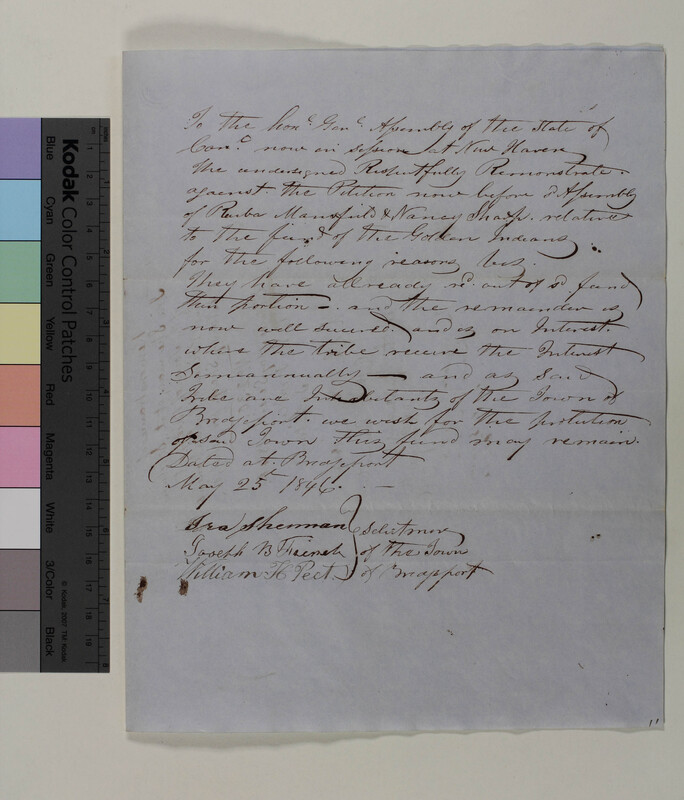 To the honl. Genl. Assembly of the State of
Conn. now in session at New Haven
The undersigned Respectfully Remonstrate
against the Petition now before sd Assembly
of Ruba Mansfield & Nancy Sharp. relative
to the fund of the Golden Indians
for the following reasons
They have allready rd. out of sd fund
their portion - and the remainder is
now well secured and is on Interest.
where the tribe receive the Interest
Semiannually — and as said
Tribe are Inhabitants of the Town of
Bridgeport. we wish for the protection
of said Town this fund may remain.
Dated at Bridgeport
May 25th 1846. —
Ira Sherman Selectmen
Joseph B French of the Town
William H Peet of Bridgeport
11
Kodak Color Control Patches
Blue
Cyan
Green
Yellow
Red
Magenta
White
3/Color
Black
© Kodak, 2007 TM Kodak
cm 1 2 3 4 5 6 7 8 9 10 11 12 13 14 15 16 17 18 19
inches 1 2 3 4 5 6 7 8